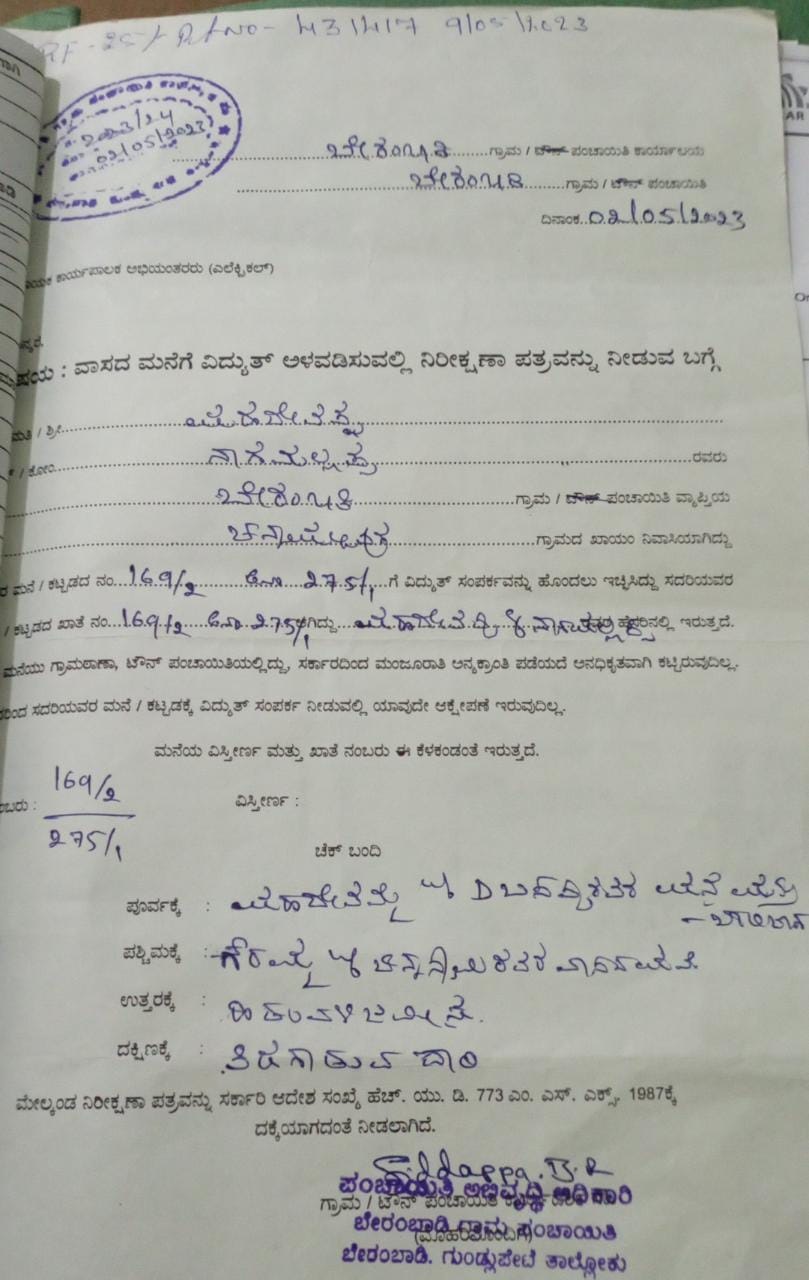 RF-25/- Rt No- 431417 9/05/2023
2023/24
02/05/2023
ಬೇರಂಬಾಡಿ ಗ್ರಾಮ / ಟೌನ್ ಪಂಚಾಯಿತಿ ಕಾರ್ಯಾಲಯ
ಬೇರಂಬಾಡಿ ಗ್ರಾಮ / ಟೌನ್ ಪಂಚಾಯಿತಿ
ದಿನಾಂಕ..02/05/2023
ಕಾರ್ಯಪಾಲಕ ಅಭಿಯಂತರರು (ಎಲೆಕ್ಟ್ರಿಕಲ್)
: ವಾಸದ ಮನೆಗೆ ವಿದ್ಯುತ್ ಅಳವಡಿಸುವಲ್ಲಿ ನಿರೀಕ್ಷಣಾ ಪತ್ರವನ್ನು ನೀಡುವ ಬಗ್ಗೆ
ಮತಿ / ಶ್ರೀ. ಮಹದೇವಪ್ಪ
/ ಕೋಂ. ನಾಗಮಲ್ಲಪ್ಪ ರವರು
ಬೇರಂಬಾಡಿ ಗ್ರಾಮ / ಟೌನ್ ಪಂಚಾಯಿತಿ ವ್ಯಾಪ್ತಿಯ
ಗ್ರಾಮದ ಖಾಯಂ ನಿವಾಸಿಯಾಗಿದ್ದು
ರ ಮನೆ / ಕಟ್ಟಡದ ನಂ. 169/2 275/1 ಗೆ ವಿದ್ಯುತ್ ಸಂಪರ್ಕವನ್ನು ಹೊಂದಲು ಇಚ್ಛಿಸಿದ್ದು ಸದರಿಯವರ
/ ಕಟ್ಟಡದ ಖಾತೆ ನಂ. 169/2 275/1 ಆಗಿದ್ದು ಮಹದೇವಪ್ಪ ನಾಗಮಲ್ಲಪ್ಪ ಹೆಸರಿನಲ್ಲಿ ಇರುತ್ತದೆ.
ಮನೆಯು ಗ್ರಾಮಠಾಣಾ, ಟೌನ್ ಪಂಚಾಯಿತಿಯಲ್ಲಿದ್ದು, ಸರ್ಕಾರದಿಂದ ಮಂಜೂರಾತಿ ಅನ್ಯಕ್ರಾಂತಿ ಪಡೆಯದೆ ಅನಧಿಕೃತವಾಗಿ ಕಟ್ಟಿರುವುದಿಲ್ಲ.
ಸದರಿಯವರ ಮನೆ / ಕಟ್ಟಡಕ್ಕೆ ವಿದ್ಯುತ್ ಸಂಪರ್ಕ ನೀಡುವಲ್ಲಿ ಯಾವುದೇ ಆಕ್ಷೇಪಣೆ ಇರುವುದಿಲ್ಲ.
ಮನೆಯ ವಿಸ್ತೀರ್ಣ ಮತ್ತು ಖಾತೆ ನಂಬರು ಈ ಕೆಳಕಂಡಂತೆ ಇರುತ್ತದೆ.
ಂಬರು : 169/2 ವಿಸ್ತೀರ್ಣ :
275/1
ಚೆಕ್ ಬಂದಿ
ಪೂರ್ವಕ್ಕೆ : ಮಹದೇವಮ್ಮ W/ D ಮನೆ ಮತ್ತು
ಪಶ್ಚಿಮಕ್ಕೆ : ಗೌರಮ್ಮ W/
ಉತ್ತರಕ್ಕೆ :
ದಕ್ಷಿಣಕ್ಕೆ : ತಿರುಗಾಡುವ ದಾರಿ
ಮೇಲ್ಕಂಡ ನಿರೀಕ್ಷಣಾ ಪತ್ರವನ್ನು ಸರ್ಕಾರಿ ಆದೇಶ ಸಂಖ್ಯೆ ಹೆಚ್. ಯು. ಡಿ. 773 ಎಂ. ಎಸ್. ಎಕ್ಸ್. 1987ಕ್ಕೆ
ದಕ್ಕೆಯಾಗದಂತೆ ನೀಡಲಾಗಿದೆ.
Siddappa. B.R
ಪಂಚಾಯಿತಿ ಅಭಿವೃದ್ಧಿ ಅಧಿಕಾರಿ
ಗ್ರಾಮ / ಟೌನ್ ಪಂಚಾಯಿತಿ
ಬೇರಂಬಾಡಿ ಗ್ರಾಮ ಪಂಚಾಯಿತಿ
ಬೇರಂಬಾಡಿ. ಗುಂಡ್ಲುಪೇಟೆ ತಾಲ್ಲೋಕು